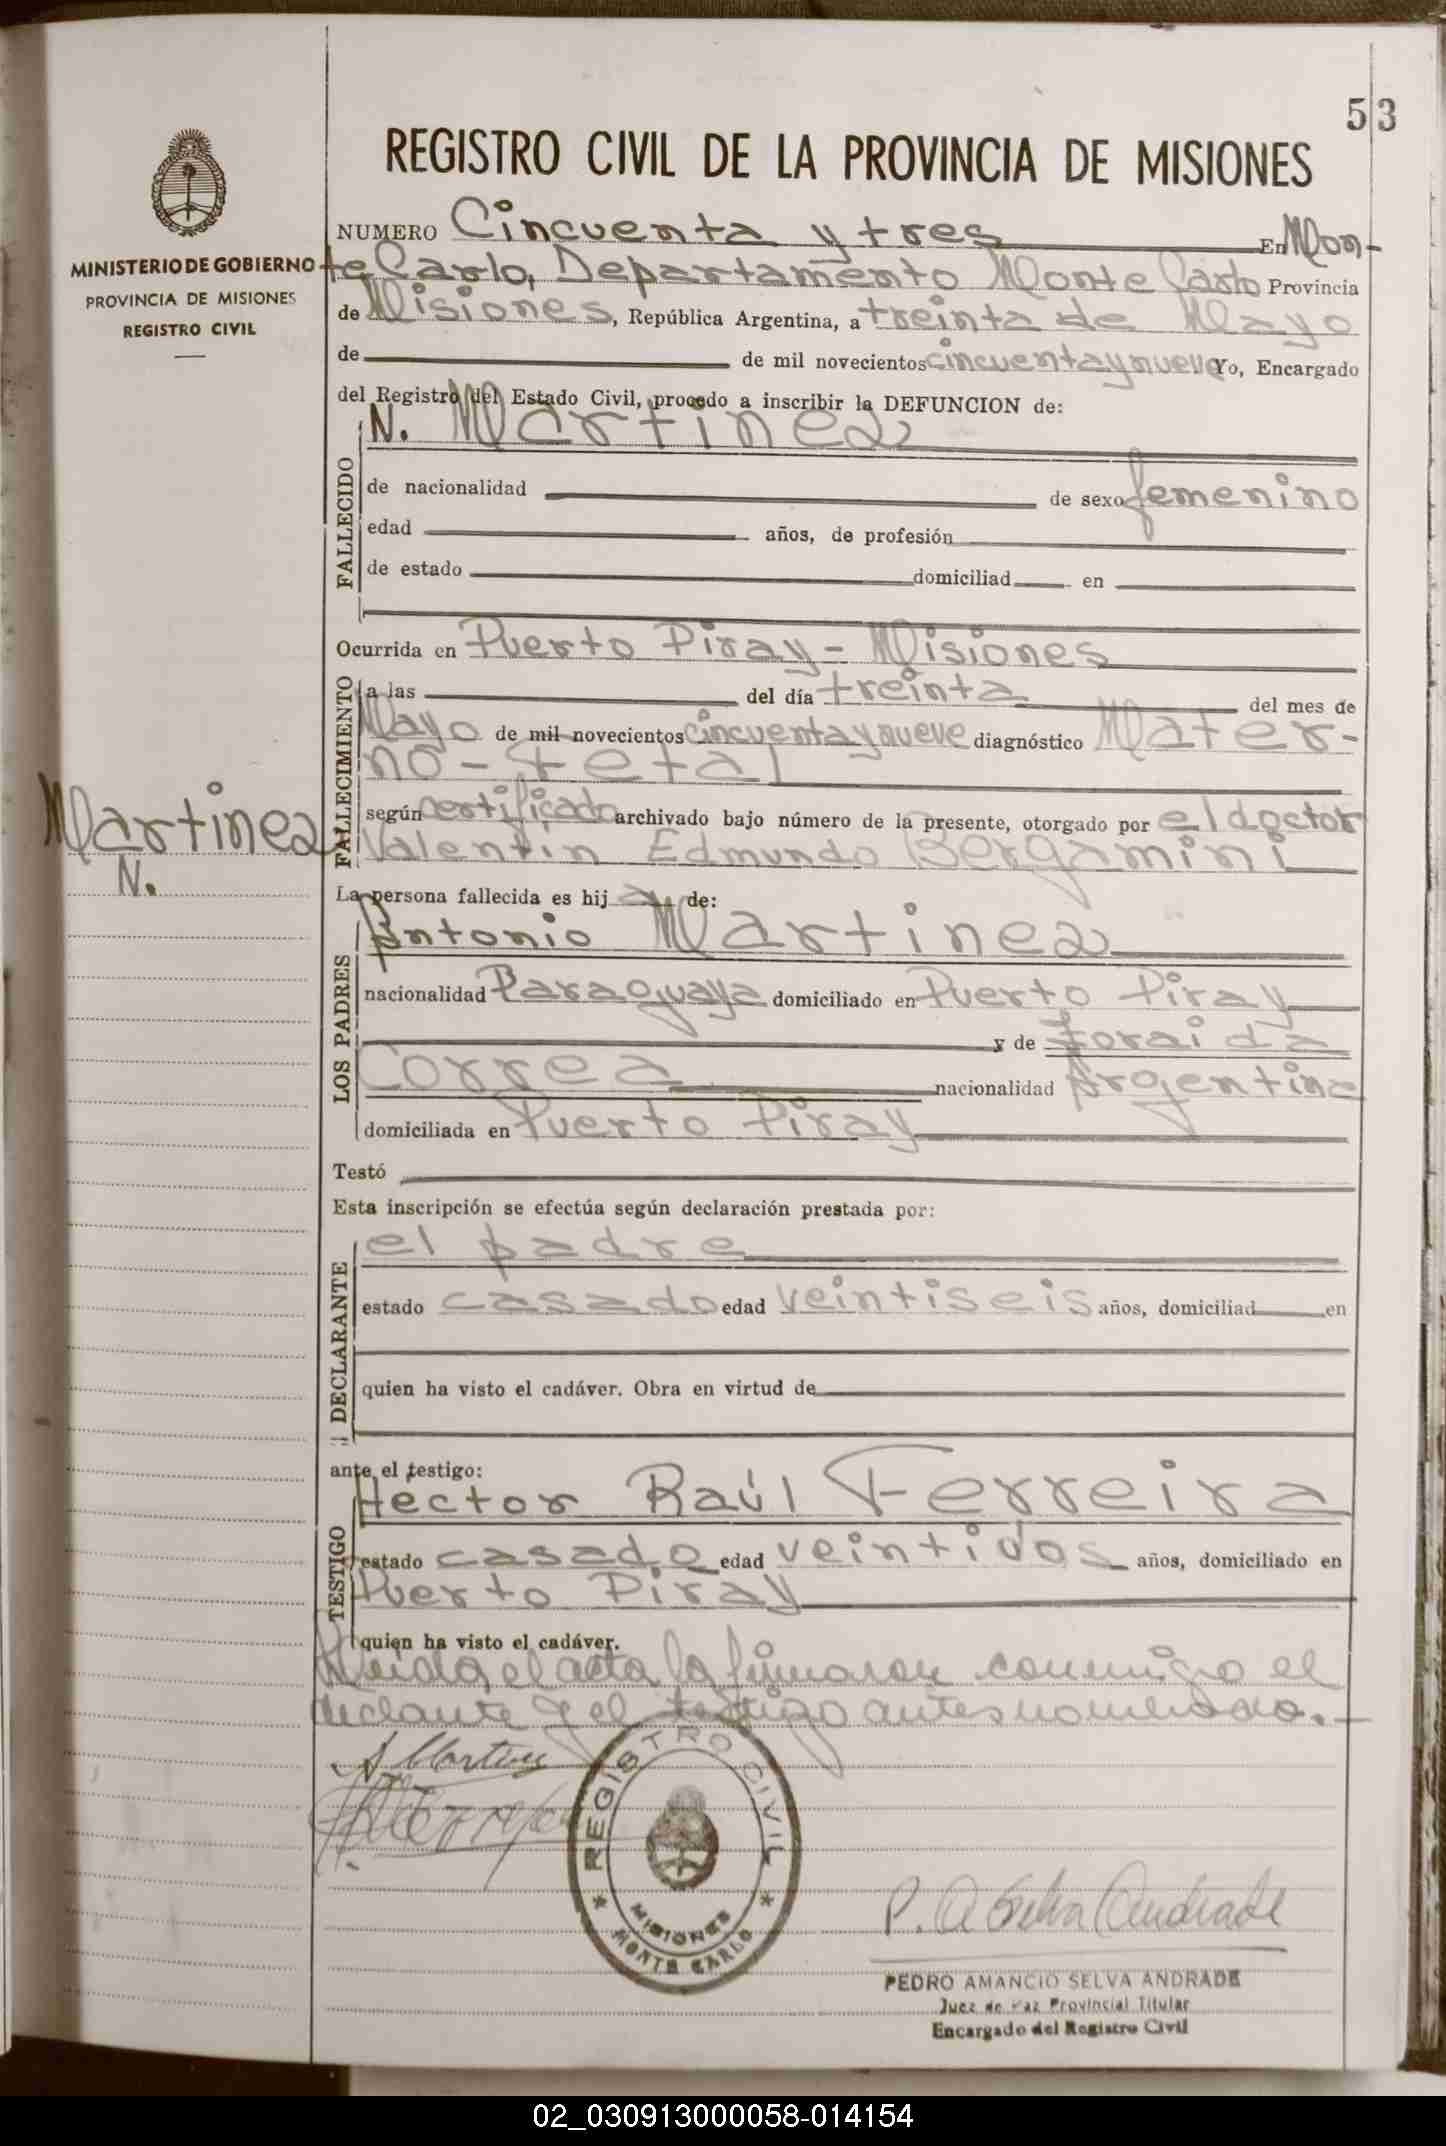 53
REGISTRO CIVIL DE LA PROVINCIA DE MISIONES
MINISTERIO DE GOBIERNO
PROVINCIA DE MISIONES
REGISTRO CIVIL
NUMERO Cincuenta y tres En Mon-
te Carlo, Departamento Monte Carlo Provincia
de Misiones, República Argentina, a treinta de Mayo
de de mil novecientos cincuenta y nueve Yo, Encargado
del Registro del Estado Civil, procedo a inscribir la DEFUNCION de:
N. Martinez
FALLECIDO
de nacionalidad de sexo femenino
edad años, de profesión
de estado domiciliad en
Ocurrida en Puerto Piray - Misiones
FALLECIMIENTO
a las del día treinta del mes de
Mayo de mil novecientos cincuenta y nueve diagnóstico Mater-
no-fetal
según certificado archivado bajo número de la presente, otorgado por el doctor
Valentin Edmundo Bergamini
Martinez
N.
La persona fallecida es hij a de:
LOS PADRES
Antonio Martinez
nacionalidad Paraguaya domiciliado en Puerto Piray
y de Zoraida
Correa nacionalidad Argentina
domiciliada en Puerto Piray
Testó
Esta inscripción se efectúa según declaración prestada por:
DECLARANTE
el padre
estado casado edad veintiseis años, domiciliad en
quien ha visto el cadáver. Obra en virtud de
ante el testigo:
TESTIGO
Hector Raúl Ferreira
estado casado edad veintidos años, domiciliado en
Puerto Piray
quien ha visto el cadáver.
Leida el acta la firmaron conmigo el
declarante y el testigo antes nombrado.-
A Martinez
REGISTRO CIVIL
MISIONES
MONTE CARLO
P. A Selva Andrade
PEDRO AMANCIO SELVA ANDRADE
Juez de Paz Provincial Titular
Encargado del Registro Civil
02_030913000058-014154